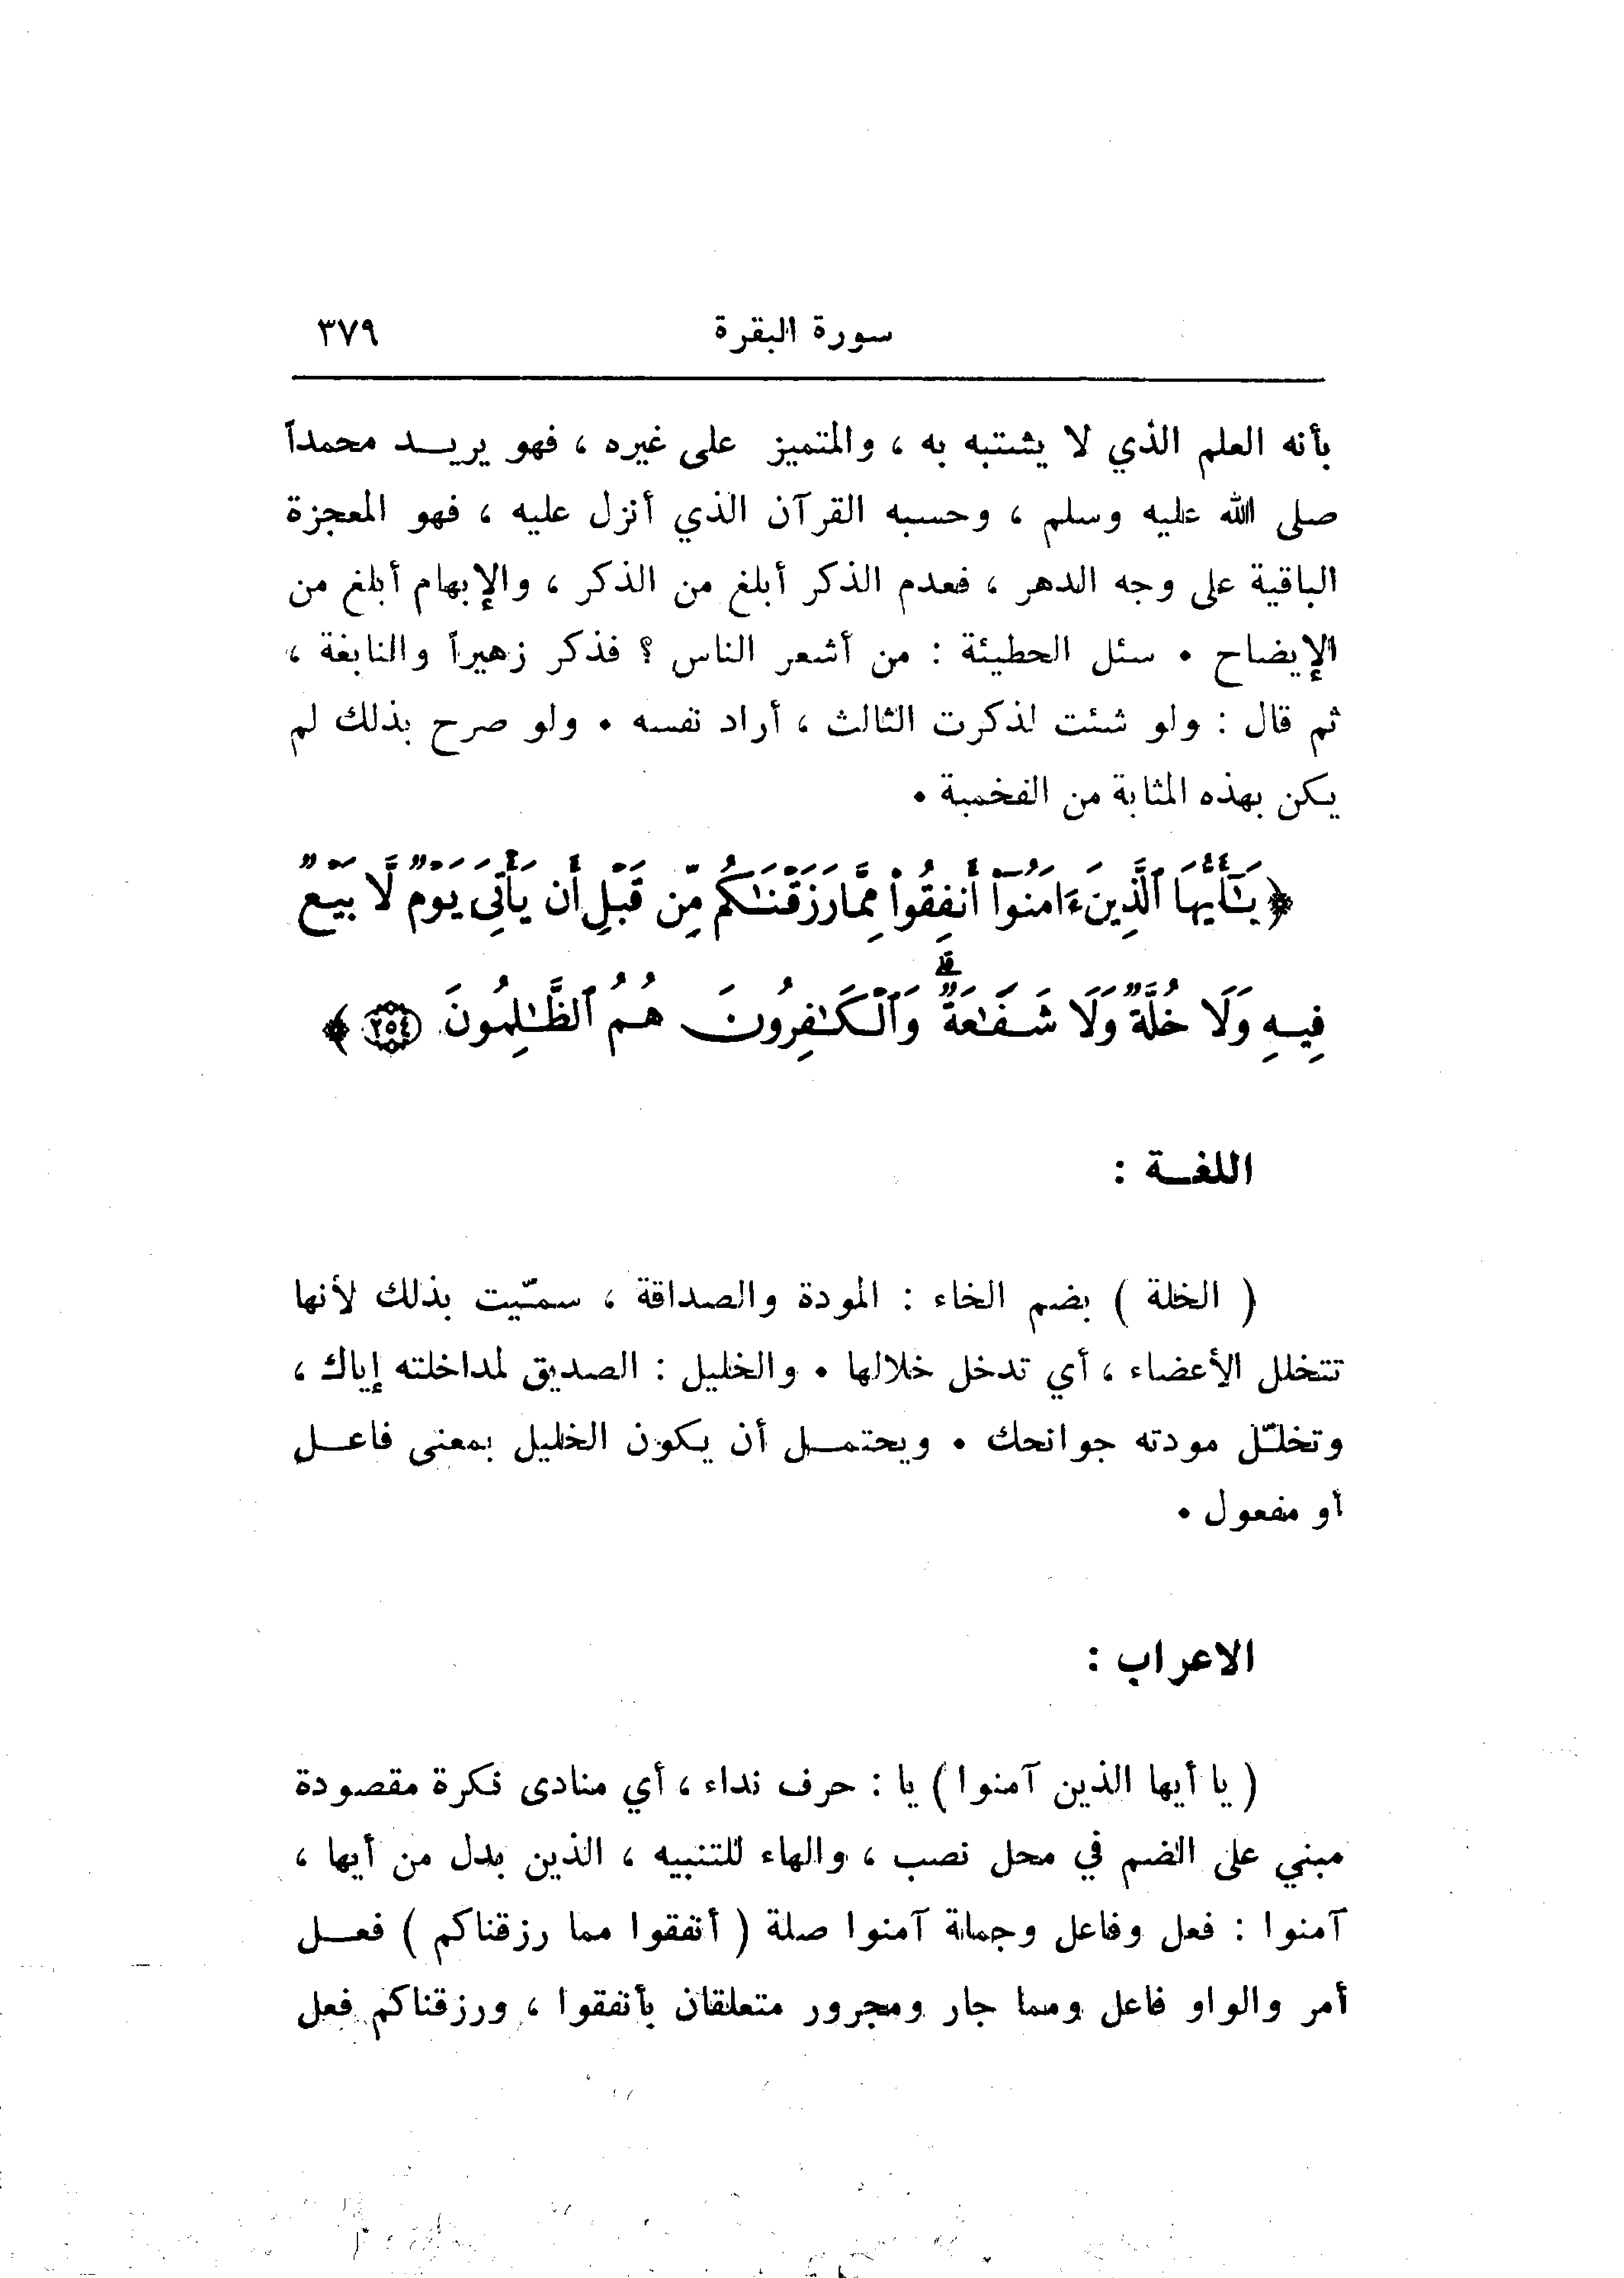 سورة البقرة ٣٧٩
بأنه العلم الذي لا يشتبه به ، والمتميز على غيره ، فهو يريـــد محمداً
صلى الله عليه وسلم ، وحسبه القرآن الذي أنزل عليه ، فهو المعجزة
الباقية على وجه الدهر ، فعدم الذكر أبلغ من الذكر ، والإبهام أبلغ من
الإيضاح . سئل الحطيئة : من أشعر الناس ؟ فذكر زهيراً والنابغة ،
ثم قال : ولو شئت لذكرت الثالث ، أراد نفسه . ولو صرح بذلك لم
يكن بهذه المثابة من الفخمية .
﴿ يَـٰٓأَيُّهَا ٱلَّذِينَ ءَامَنُوٓا۟ أَنفِقُوا۟ مِمَّا رَزَقْنَـٰكُم مِّن قَبْلِ أَن يَأْتِىَ يَوْمٌ لَّا بَيْعٌ
فِيهِ وَلَا خُلَّةٌ وَلَا شَفَـٰعَةٌ ۗ وَٱلْكَـٰفِرُونَ هُمُ ٱلظَّـٰلِمُونَ ٢٥٤ ﴾
اللغـــة :
( الخلة ) بضم الخاء : المودة والصداقة ، سمّيت بذلك لأنها
تتخلل الأعضاء ، أي تدخل خلالها . والخليل : الصديق لمداخلته إياك ،
وتخلّل مودته جوانحك . ويحتمـــل أن يكون الخليل بمعنى فاعـــل
أو مفعول .
الاعراب :
( يا أيها الذين آمنوا ) يا : حرف نداء ، أي منادى نكرة مقصودة
مبني على الضم في محل نصب ، والهاء للتنبيه ، الذين بدل من أيها ،
آمنوا : فعل وفاعل وجملة آمنوا صلة ( أنفقوا مما رزقناكم ) فعـــل
أمر والواو فاعل ومما جار ومجرور متعلقان بأنفقوا ، ورزقناكم فعل